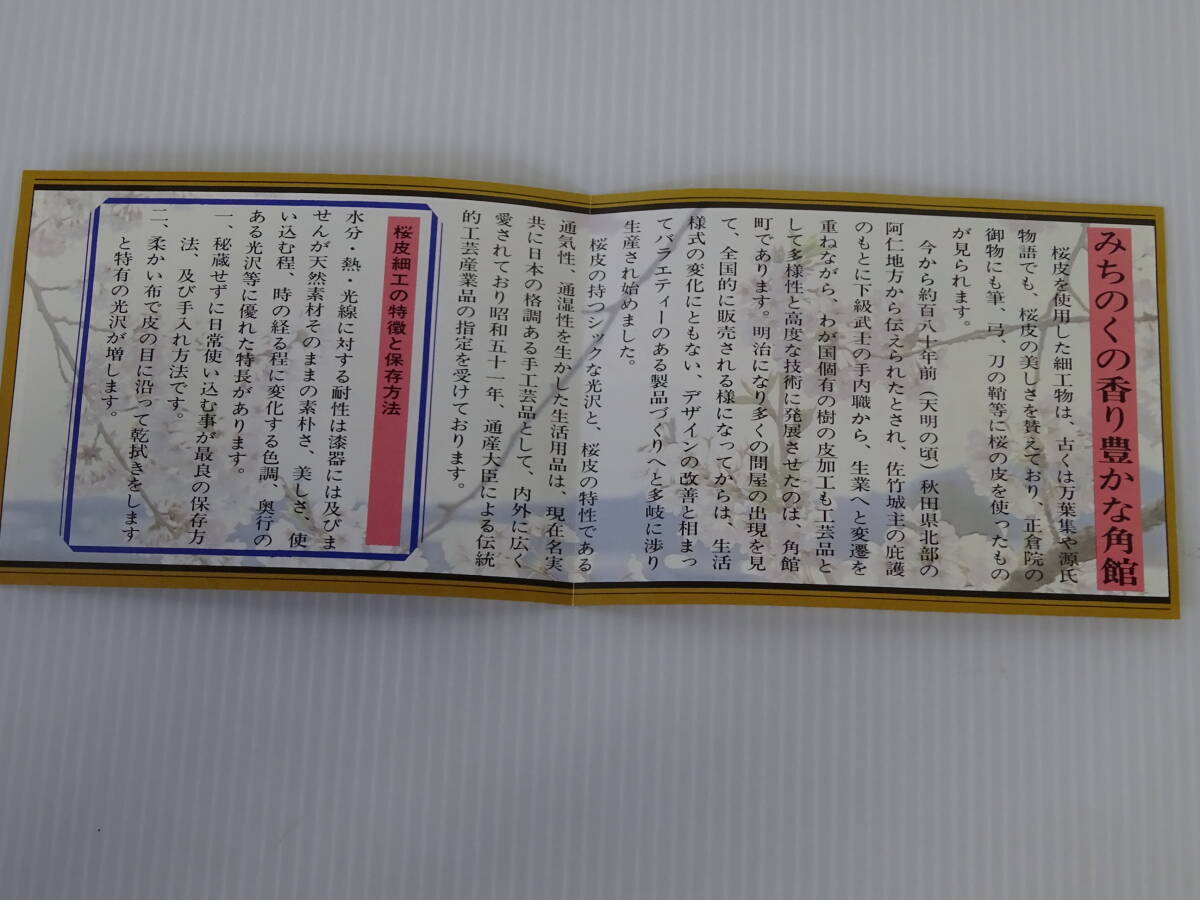 みちのくの香り豊かな角館
桜皮を使用した細工物は、古くは万葉集や源氏
物語でも、桜皮の美しさを贊えており、正倉院の
御物にも筆、弓、刀の鞘等に桜の皮を使ったもの
が見られます。
今から約百八十年前(天明の頃)秋田県北部の
阿仁地方から伝えられたとされ、佐竹城主の庇護
のもとに下級武士の手内職から、生業へと変遷を
重ねながら、わが国個有の樹の皮加工も工芸品と
して多様性と高度な技術に発展させたのは、角館
町であります。明治になり多くの問屋の出現を見
て、全国的に販売される様になってからは、生活
様式の変化にともない、デザインの改善と相まっ
てバラエティーのある製品づくりへと多岐に渉り
生産され始めました。
桜皮の持つシックな光沢と、桜皮の特性である
通気性、通湿性を生かした生活用品は、現在名実
共に日本の格調ある手工芸品として、内外に広く
愛されており昭和五十一年、通産大臣による伝統
的工芸産業品の指定を受けております。
桜皮細工の特徴と保存方法
水分・熱・光線に対する耐性は漆器には及びま
せんが天然素材そのままの素朴さ、美しさ、使
い込む程、時の経る程に変化する色調、奥行の
ある光沢等に優れた特長があります。
一、秘蔵せずに日常使い込む事が最良の保存方
法、及び手入れ方法です。
二、柔かい布で皮の目に沿って乾拭きをします
と特有の光沢が増します。